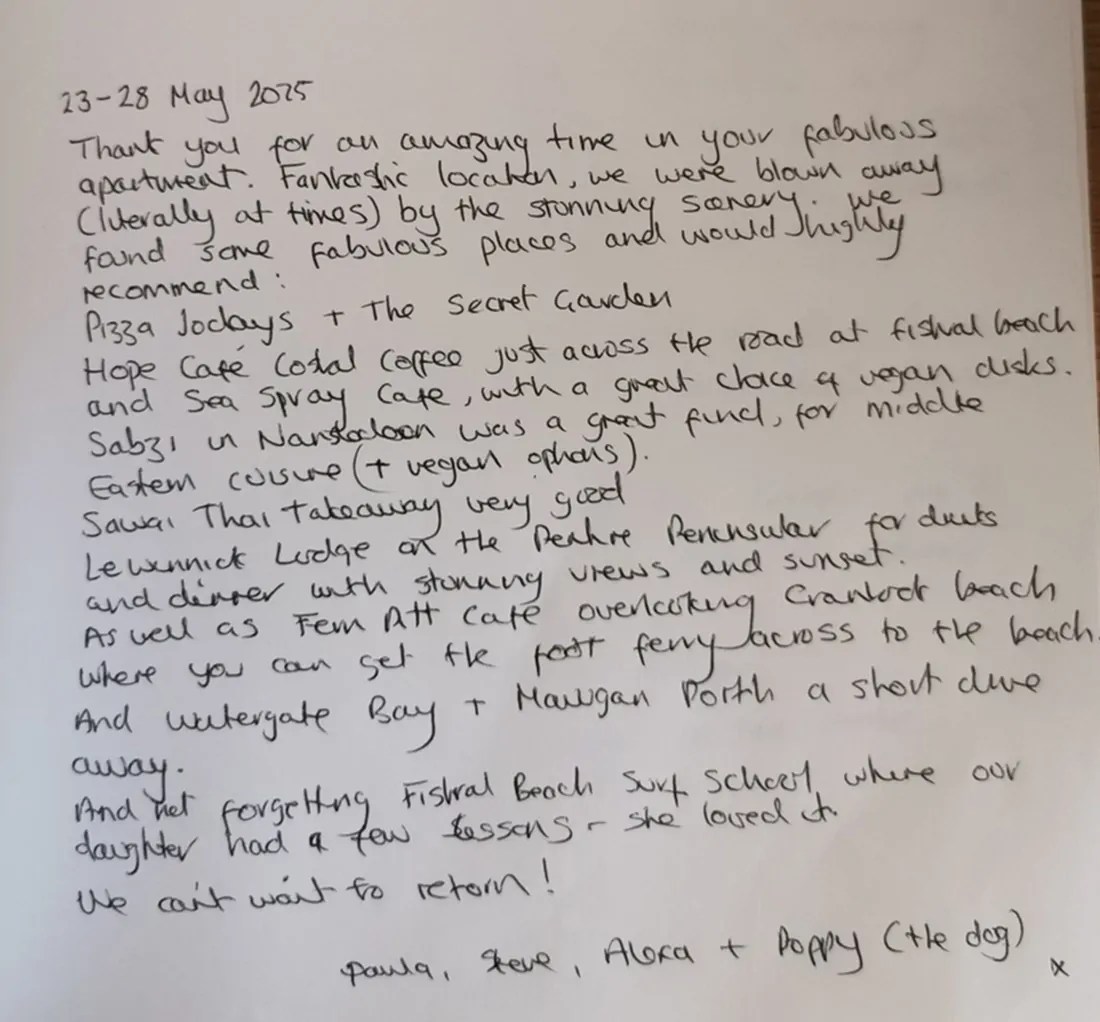 23-28 May 2025
Thank you for an amazing time in your fabulous
apartment. Fantastic location, we were blown away
(literally at times) by the stunning scenery. We
found some fabulous places and would highly
recommend:
Pizza Jodays + The Secret Garden
Hope Café Costal Coffee just across the road at fistral beach
and Sea Spray Cafe, with a great choice of vegan disks.
Sabzi in was a great find, for middle
Eastern cuisure (+ vegan options).
Sawai Thai takeaway very good
Lewinnick Lodge on the Pentire Peninsular for
and dinner with stunning views and sunset.
As well as Fern Pitt Café overlooking Crantock beach
where you can get the foot ferry across to the beach.
And Watergate Bay + Mawgan Porth a short drive
away.
And not forgetting Fistral Beach Surf School, where our
daughter had a few lessons - she loved it.
We can't wait to return!
Paula, Steve, Alexa + Poppy (the dog)
x